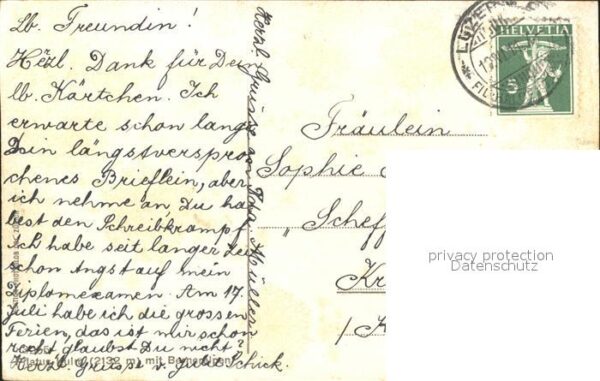 Lb. Freundin!
Herzl. Dank für Dein
lb. Kärtchen. Ich
erwarte schon lange
Dein längstverspro
chenes Brieflein, aber
ich nehme an Du ha
best den Schreibkrampf.
Ich habe seit langer Zeit
schon Angst auf mein
Diplomexamen. Am 17.
Juli habe ich die grossen
Ferien, das ist mir schon
recht glaubst Du nicht?
Herzl Grüsse v. Julis Schick.
Pilatus-Kulm (2132 m) mit
Herzl Grüsse an Ida. Müller
Fräulein
Sophie
"Scheff
Kr
HELVETIA
5
LUZERN
privacy protection
Datenschutz